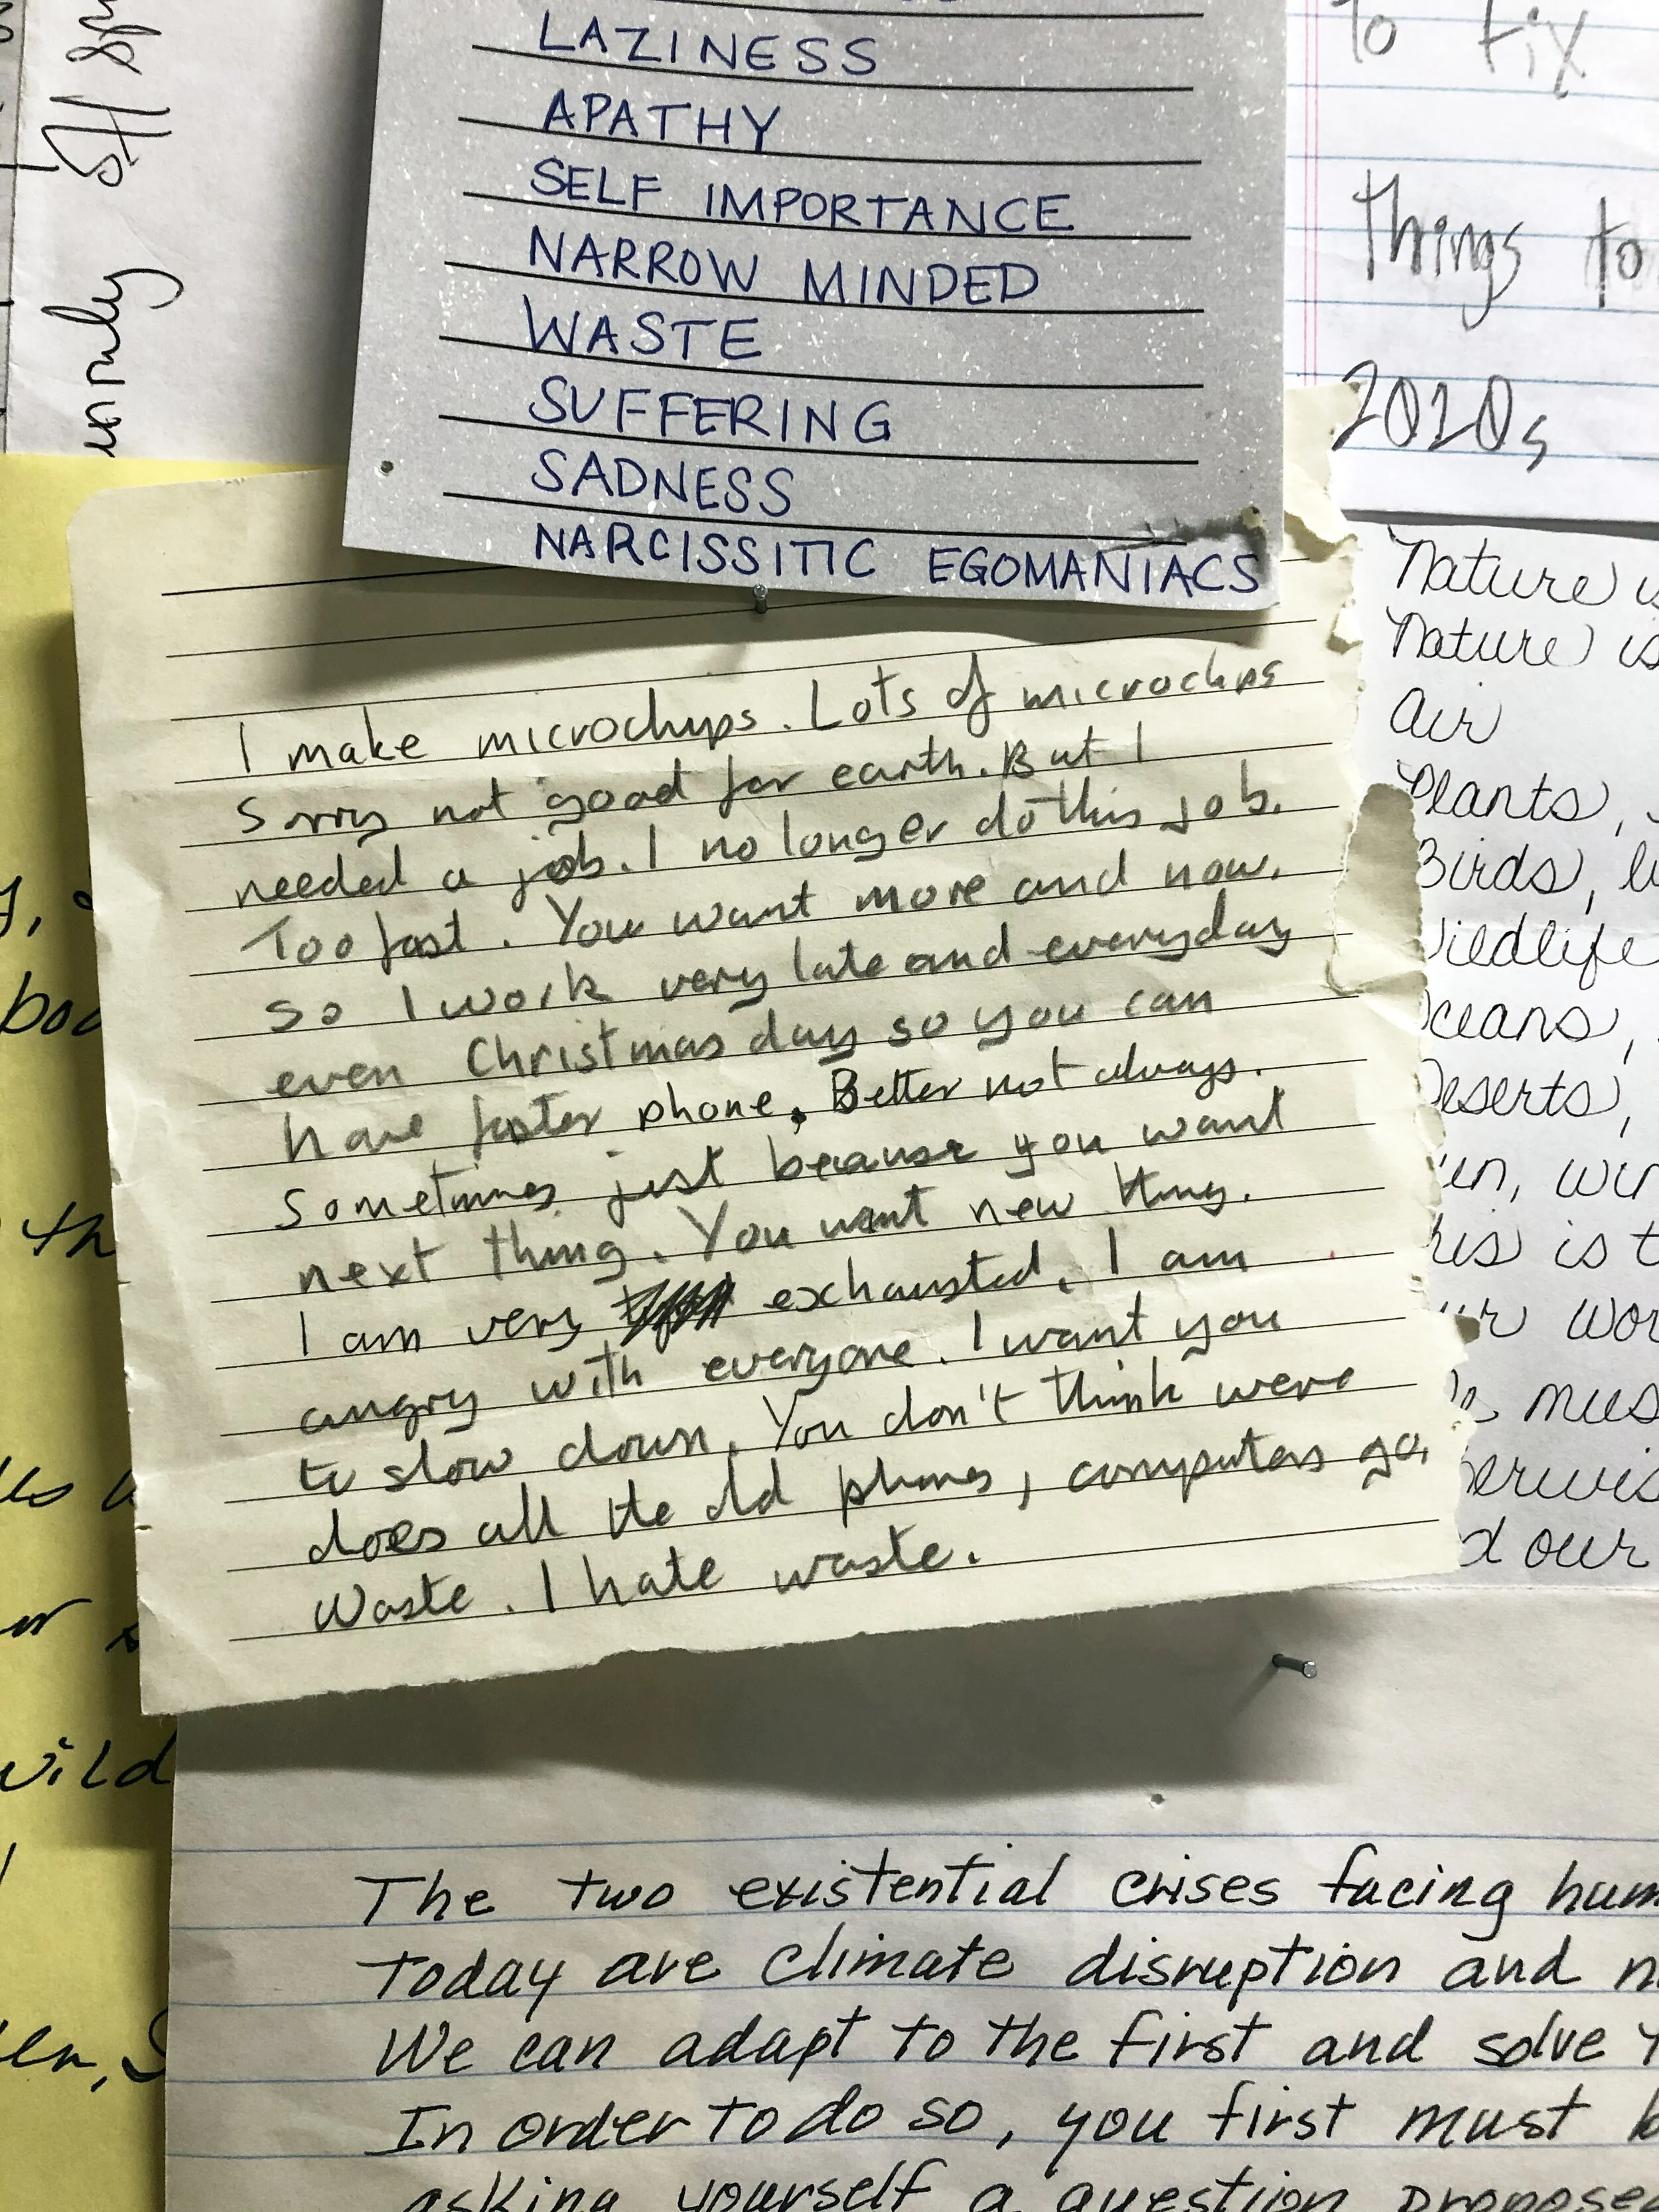 LAZINESS
APATHY
SELF IMPORTANCE
NARROW MINDED
WASTE
SUFFERING
SADNESS
NARCISSITIC EGOMANIACS
I make microchips. Lots of microchips
Sorry not good for earth. But I
needed a job. I no longer do this job.
Too fast. You want more and now.
so I work very late and everyday
even Christmas day so you can
have faster phone. Better not always.
Sometimes just because you want
next thing. You want new thing.
I am very exhausted. I am
angry with everyone. I want you
to slow down. You don't think were
does all the old phones, computers go.
Waste. I hate waste.
To fix
Things to
2010s
Nature is
Nature is
Air
Plants,
Birds,
Wildlife
Oceans,
Deserts,
is t
wor
mus
our
The two existential crises facing hum
Today are climate disruption and n
We can adapt to the first and solve
In order to do so, you first must b
asking yourself a question propose
th
wild